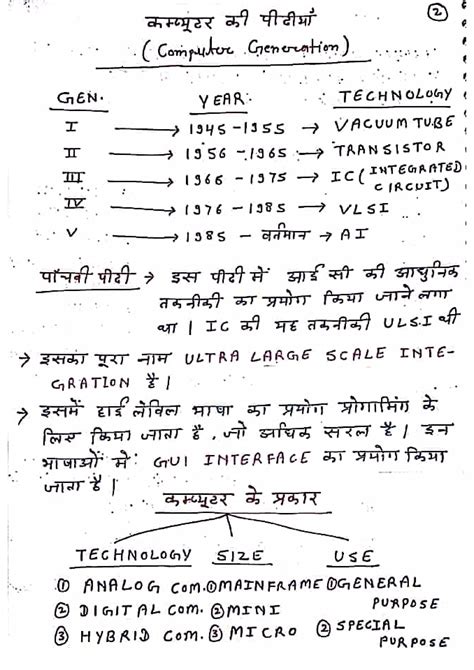 कम्प्यूटर की पीढीयाँ
②
( Computer Generation )
GEN. YEAR. TECHNOLOGY
I → 1945 - 1955 → VACUUM TUBE
II → 1956 - 1965 → TRANSISTOR
III → 1966 - 1975 → IC ( INTEGRATED CIRCUIT)
IV → 1976 - 1985 → VLSI
V → 1985 - वर्तमान → AI
पांचवी पीढी → इस पीढी में आई सी की आधुनिक
तकनीकी का प्रयोग किया जाने लगा
था | IC की यह तकनीकी ULSI थी
→ इसका पूरा नाम ULTRA LARGE SCALE INTE-
GRATION है |
→ इसमें हाई लेविल भाषा का प्रयोग प्रोगामिंग के
लिए किया जाता है , जो अधिक सरल है | इन
भाषाओं में: GUI INTERFACE का प्रयोग किया
जाता है |
कम्प्यूटर के प्रकार
TECHNOLOGY SIZE USE
① ANALOG COM. ① MAINFRAME ① GENERAL PURPOSE
② DIGITAL COM. ② MINI
③ HYBRID COM. ③ MICRO ② SPECIAL PURPOSE